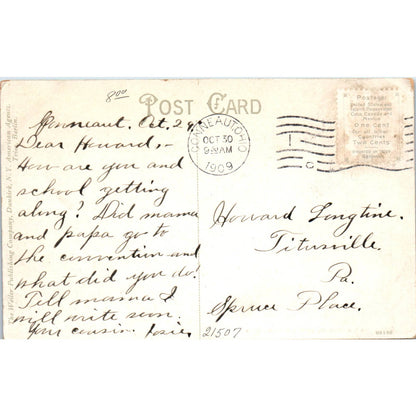 8⁰⁰
POST CARD
Conneaut. Oct. 29,
Dear Howard,-
How are you and
school getting
along? Did mama
and papa go to
the convention and
what did you do?
Tell mama I
will write soon.
Your cousin Josie.
CONNEAUT, OHIO
OCT 30
9-AM
1909
Postage
United States and
Island Possessions
Cuba, Canada and
Mexico
ONE CENT
For all other
Countries
TWO CENTS
Howard Longtine.
Titusville.
Pa.
Spruce Place.
21507
Publishing Company, Dunkirk, N.Y. American Agency.
Berlin.